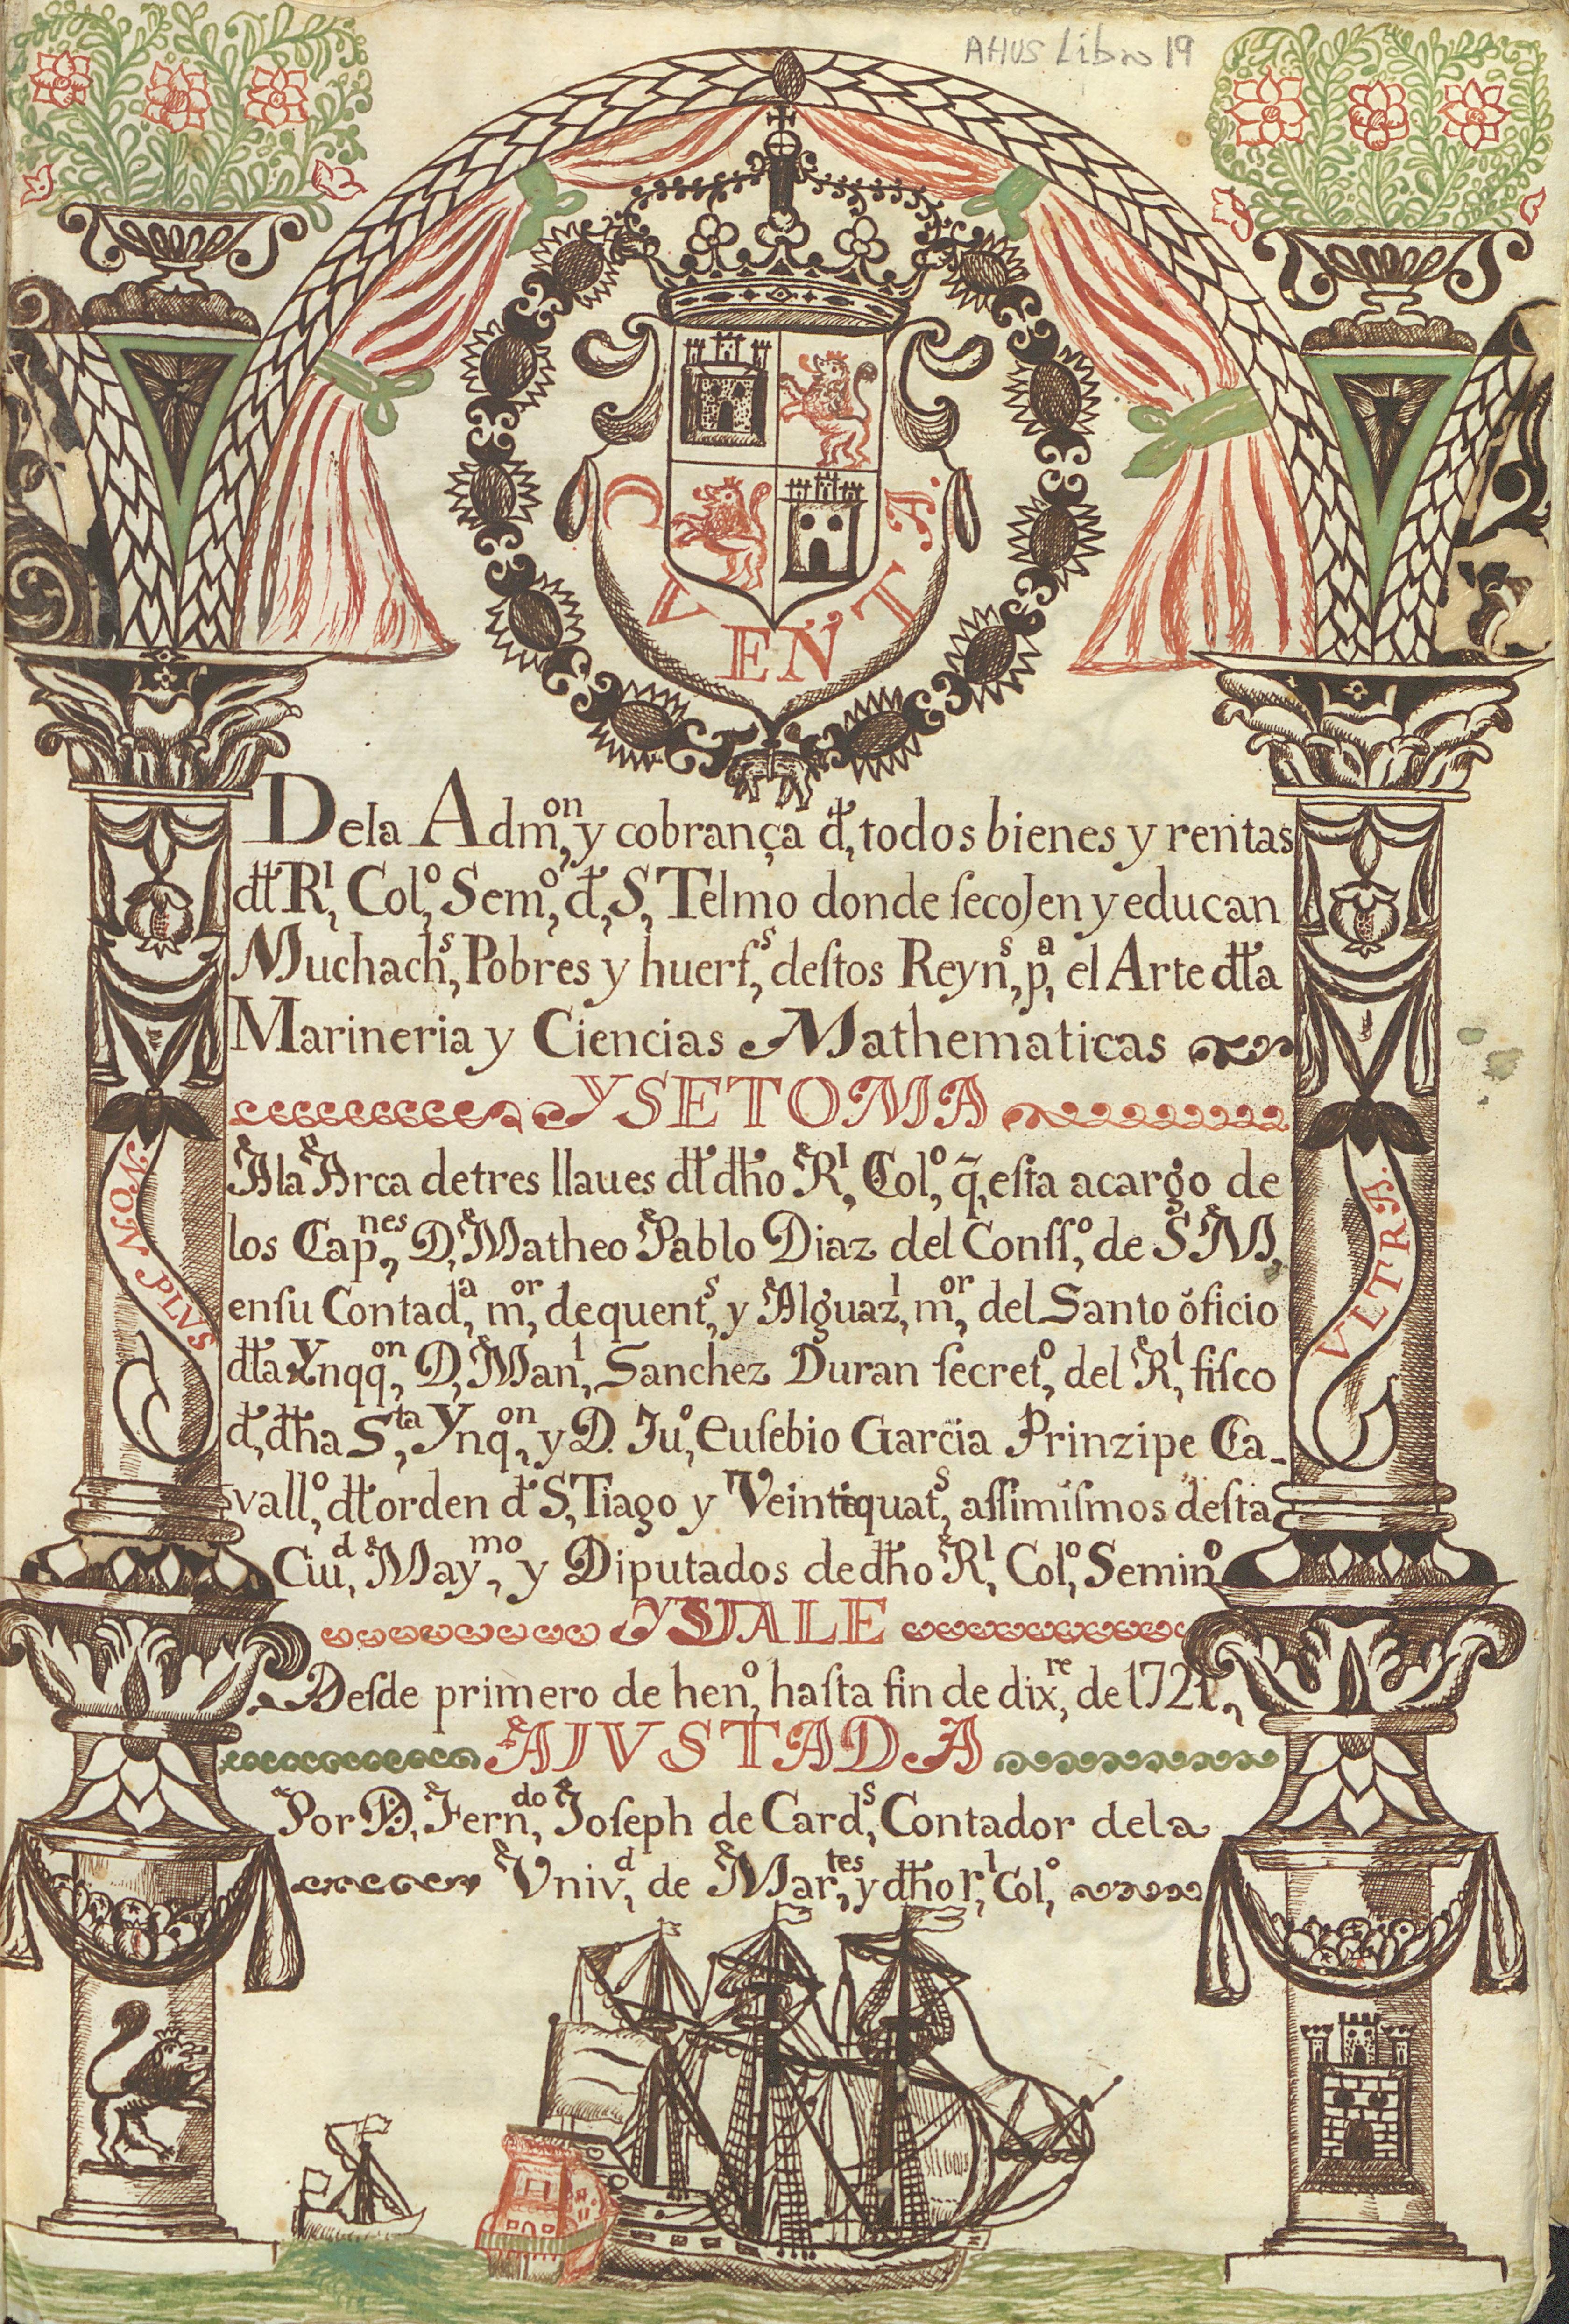 AHUS Libro 19
CVENTA.
Dela Adm.on, y cobrança đ, todos bienes y rentas
đł R.l, Col.o, Sem.o, đ, S, Telmo donde ſecoJen y educan
Muchach.s, Pobres y huerf.s, deſtos Reyn.s, p.a, el Arte đła
Marineria y Ciencias Mathematicas
Y SE TOMA
Ala Arca detres llaues đł đħo R.l, Col.o, q̃, eſta acargo de
los Cap.nes, D, Matheo Pablo Diaz del Conſſ.o, de S M,
enſu Contad.a, m.or, dequent.s, y Alguaz.l, m.or, del Santo oficio
đła Ynqq.on, D, Man.l, Sanchez Duran ſecret.o, del R.l, fiſco
đ, đħa S.ta, Ynq.on, y D. Ju.o, Euſebio Garcia Prinzipe Ca-
vall.o, đł orden đ S, Tiago y Veintiquat.s, aſſimiſmos deſta
Ciu.d, May.mo, y Diputados de đħo R.l, Col.o, Semin.o
Y SDALE
Deſde primero de hen.o, haſta fin de dix.re, de 1721,
AJVSTADA
Por D, Fern.do, Joſeph de Card.s, Contador dela
Univ.d, de Mar.tes, y đħo r.l, Col.o,
NON PLVS
VLTRA.